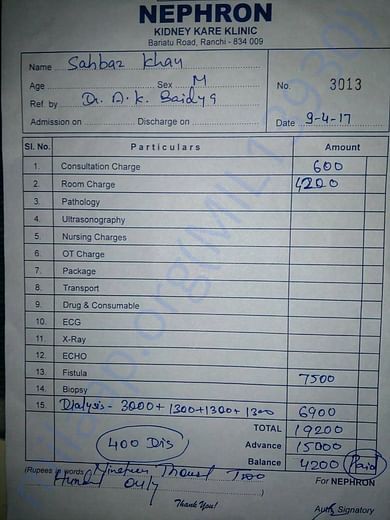 NEPHRON
KIDNEY KARE KLINIC
Bariatu Road, Ranchi - 834 009
Name Sahbaz Khan
Age Sex M
Ref. by Dr. A. K. Baidya
Admission on Discharge on
No. 3013
Date 9-4-17
Sl. No. Particulars Amount
1. Consultation Charge 600
2. Room Charge 4200
3. Pathology
4. Ultrasonography
5. Nursing Charges
6. OT Charge
7. Package
8. Transport
9. Drug & Consumable
10. ECG
11. X-Ray
12. ECHO
13. Fistula 7500
14. Biopsy
15. Dialysis - 3000 + 1300 + 1300 + 1300 6900
TOTAL 19200
400 Dis
Advance 15000
Balance 4200 Paid
(Rupees in words Nineteen Thousand Two
Hundred only)
For NEPHRON
Thank You!
Auth. Signatory